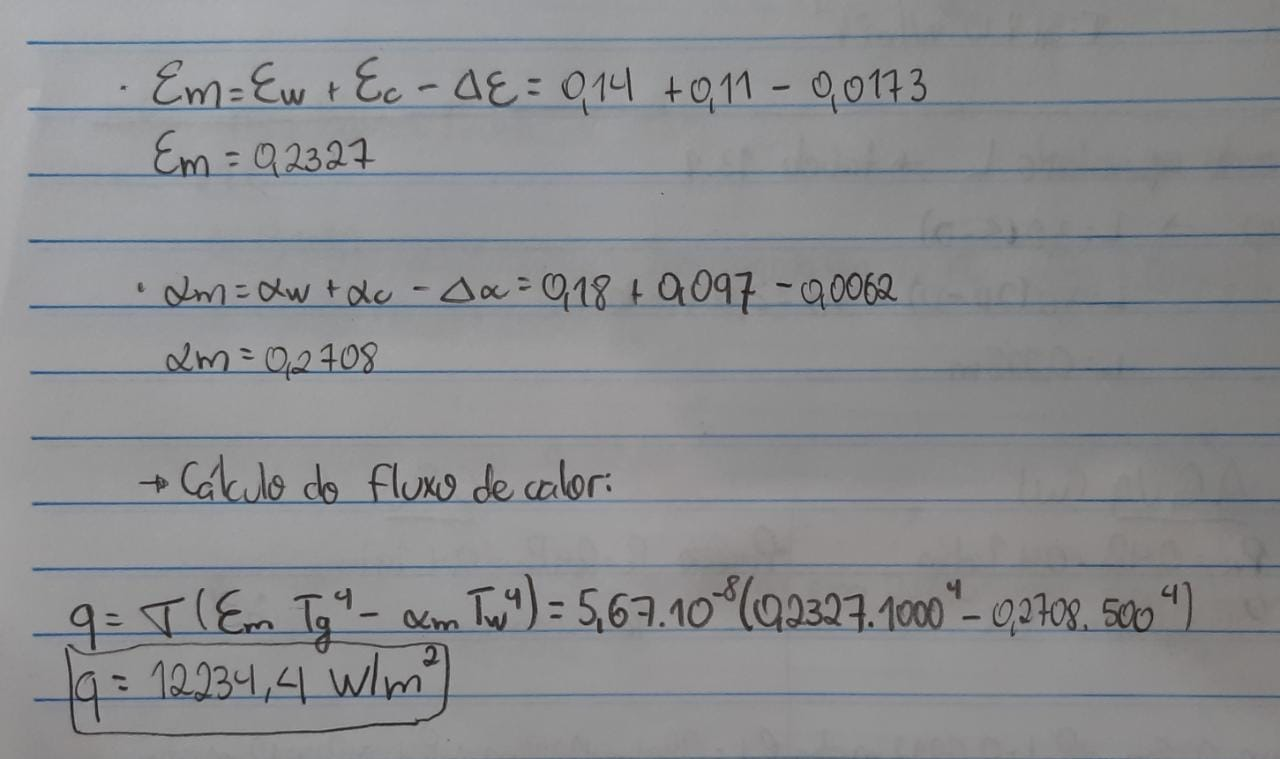 · Ɛm = Ɛw + Ɛc - ΔƐ = 0,14 + 0,11 - 0,0173
Ɛm = 0,2327
· αm = αw + αc - Δα = 0,18 + 0,097 - 0,0062
αm = 0,2708
→ Cálculo do fluxo de calor:
q = σ(Ɛm Tg⁴ - αm Tw⁴) = 5,67.10⁻⁸(0,2327.1000⁴ - 0,2708.500⁴)
q = 12234,4 W/m²